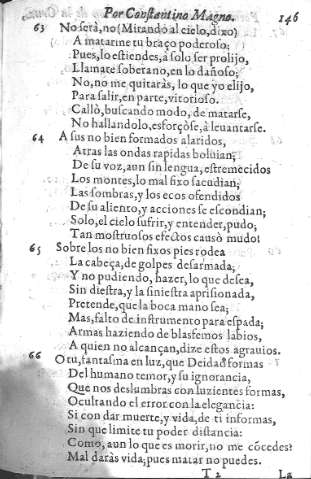 Por Constantino Magno. 146
63 No será, no (Mirando al cielo, dixo)
A matarme tu braço poderoso;
Pues, lo estiendes, à solo ser prolijo,
Llamate soberano, en lo dañoso;
No, no me quitaràs, lo que yo elijo,
Para salir, en parte, vitorioso.
Callò, buscando modo, de matarse,
No hallandolo, esforçòse, à levantarse.
64 A sus no bien formados alaridos,
Atras las ondas rapidas boluian;
De su voz, aun sin lengua, estremecidos
Los montes, lo mal fixo sacudian;
Las sombras, y los ecos ofendidos
De su aliento, y acciones se escondian;
Solo, el cielo sufrir, y entender, pudo;
Tan mostruosos efectos causò mudo!
65 Sobre los no bien fixos pies rodea
La cabeça, de golpes desarmada;
Y no pudiendo, hazer, lo que desea,
Sin diestra, y la siniestra aprisionada,
Pretende, que la boca mano sea;
Mas, falto de instrumento para espada;
Armas haziendo de blasfemos labios,
A quien no alcançan, dize estos agrauios.
66 O tu, fantasma en luz, que Deidad formas
Del humano temor, y su ignorancia,
Que nos deslumbras con luzientes formas,
Ocultando el error con la elegãcia:
Si con dar muerte, y vida, de ti informas,
Sin que limite tu poder distancia:
Como, aun lo que es morir, no me cõcedes?
Mal daràs vida, pues matar no puedes.
T 2 La